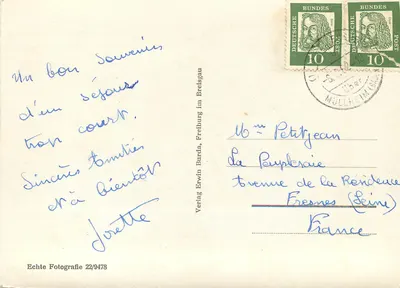 Un bon souvenir
d'un séjour
trop court.
Sincères Amitiés
et à bientôt
Josette
Echte Fotografie 22/9478
Verlag Erwin Burda, Freiburg im Breisgau
DEUTSCHE BUNDESPOST
10
DEUTSCHE BUNDESPOST
10
MÜLLHEIM
Mme Petitjean
La Peupleraie
Avenue de la Résidence
Fresnes (Seine)
France